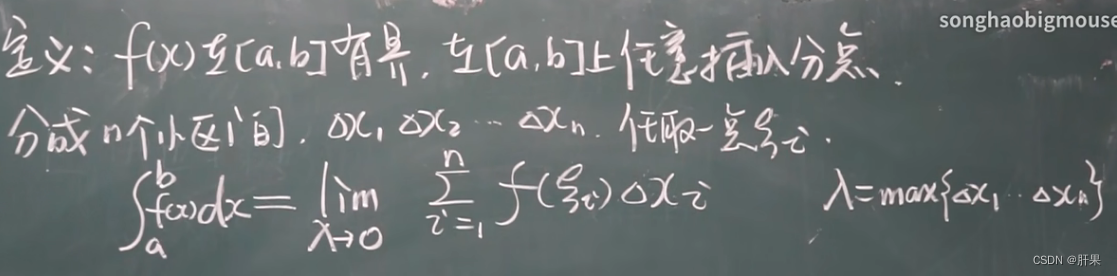 songhaobigmouse
定义: f(x)在[a,b]有界. 在[a,b]上任意插入分点.
分成n个小区间. Δx₁ Δx₂ ⋯ Δxₙ. 任取一点ξᵢ.
∫ₐᵇ f(x)dx = lim_{λ→0} ∑ᵢ₌₁ⁿ f(ξᵢ)Δxᵢ λ=max{Δx₁⋯Δxₙ}
CSDN @肝果